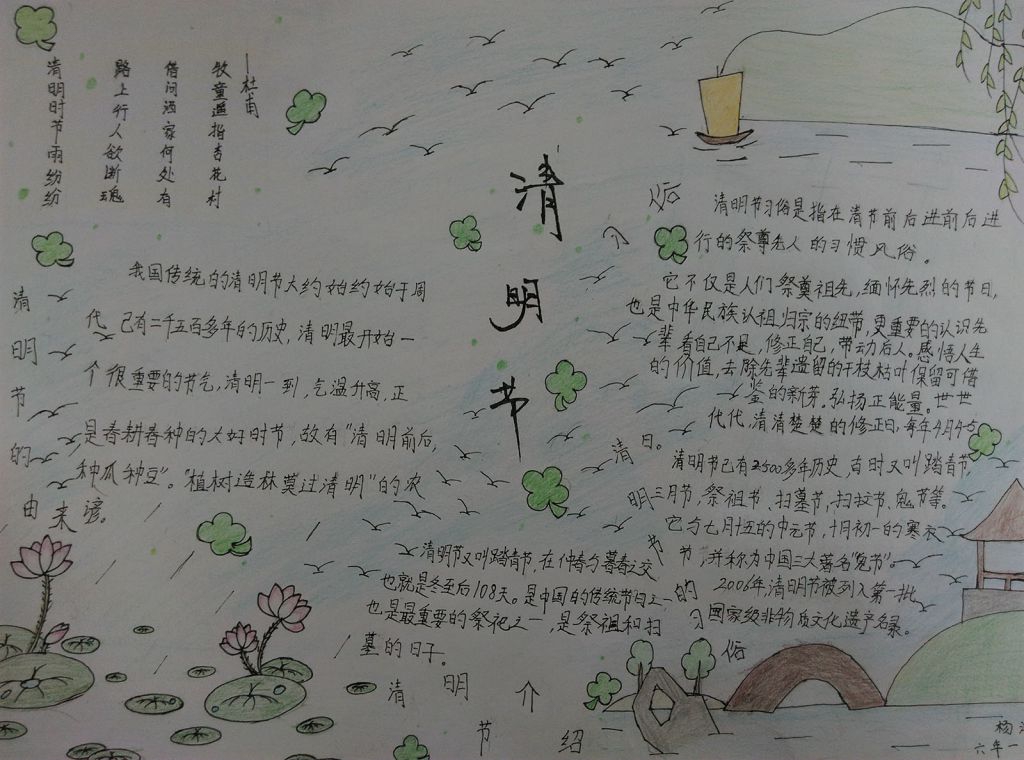 清明时节雨纷纷
路上行人欲断魂
借问酒家何处有
牧童遥指杏花村
—杜甫
清明节
清明节的由来
我国传统的清明节大约始约始于周
代、已有二千五百多年的历史,清明最开始一
个很重要的节气,清明一到,气温升高,正
是春耕春种的大好时节,故有"清明前后,
种瓜种豆"。"植树造林莫过清明"的农
谚。
清明节又叫踏青节,在仲春与暮春之交
也就是冬至后108天。是中国的传统节日之一
也是最重要的祭祀之一,是祭祖和扫
墓的日子。
清明节介绍
清明节习俗是指在清节前后进前后进
行的祭尊先人的习惯风俗。
它不仅是人们祭奠祖先,缅怀先烈的节日,
也是中华民族认祖归宗的纽带,更重要的认识先
辈看自己不足,修正自己,带动后人。感悟人生
的价值,去除先辈遗留的干枝枯叶保留可借
鉴的新芽。弘扬正能量。世世
代代,清清楚楚的修正日,每年4月4-5
日。
清明节已有2500多年历史,古时又叫踏青节,
三月节,祭祖节、扫墓节,扫坟节、鬼节等。
它与七月十五的中元节,十月初一的寒衣
节,并称为中国三大著名"鬼节"。
2006年,清明节被列入第一批
国家级非物质文化遗产名录。
清明节的习俗
杨
六年一